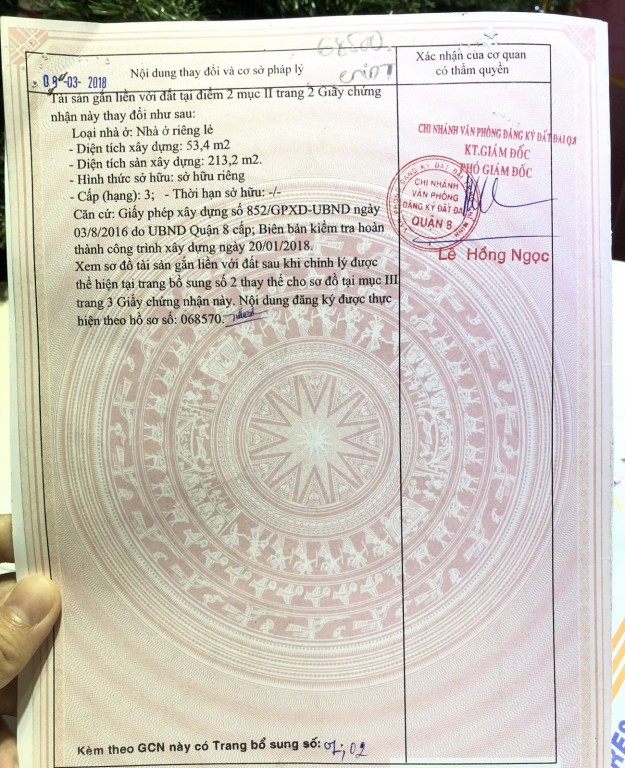 68500.
Nội dung thay đổi và cơ sở pháp lý
Xác nhận của cơ quan
có thẩm quyền
09-03-2018
Tài sản gắn liền với đất tại điểm 2 mục II trang 2 Giấy chứng
nhận này thay đổi như sau:
Loại nhà ở: Nhà ở riêng lẻ
- Diện tích xây dựng: 53,4 m2
- Diện tích sàn xây dựng: 213,2 m2.
- Hình thức sở hữu: sở hữu riêng
- Cấp (hạng): 3; - Thời hạn sở hữu: -/-
Căn cứ: Giấy phép xây dựng số 852/GPXD-UBND ngày
03/8/2016 do UBND Quận 8 cấp; Biên bản kiểm tra hoàn
thành công trình xây dựng ngày 20/01/2018.
Xem sơ đồ tài sản gắn liền với đất sau khi chỉnh lý được
thể hiện tại trang bổ sung số 2 thay thế cho sơ đồ tại mục III
trang 3 Giấy chứng nhận này. Nội dung đăng ký được thực
hiện theo hồ sơ số: 068570.
CHI NHÁNH VĂN PHÒNG ĐĂNG KÝ ĐẤT ĐAI Q.8
KT.GIÁM ĐỐC
PHÓ GIÁM ĐỐC
CHI NHÁNH
VĂN PHÒNG
ĐĂNG KÝ ĐẤT ĐAI
QUẬN 8
Lê Hồng Ngọc
Kèm theo GCN này có Trang bổ sung số: 01; 02